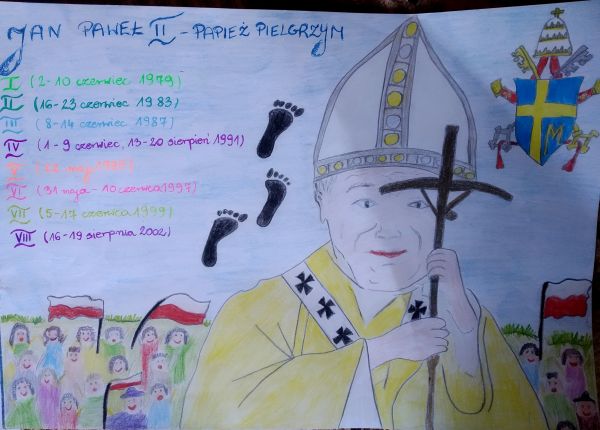 JAN PAWEŁ II - PAPIEŻ PIELGRZYM
I (2-10 czerwiec 1979)
II (16-23 czerwiec 1983)
III (8-14 czerwiec 1987)
IV (1-9 czerwiec, 13-20 sierpień 1991)
V (22 maj 1995)
VI (31 maja - 10 czerwca 1997)
VII (5-17 czerwca 1999)
VIII (16-19 sierpnia 2002)
M